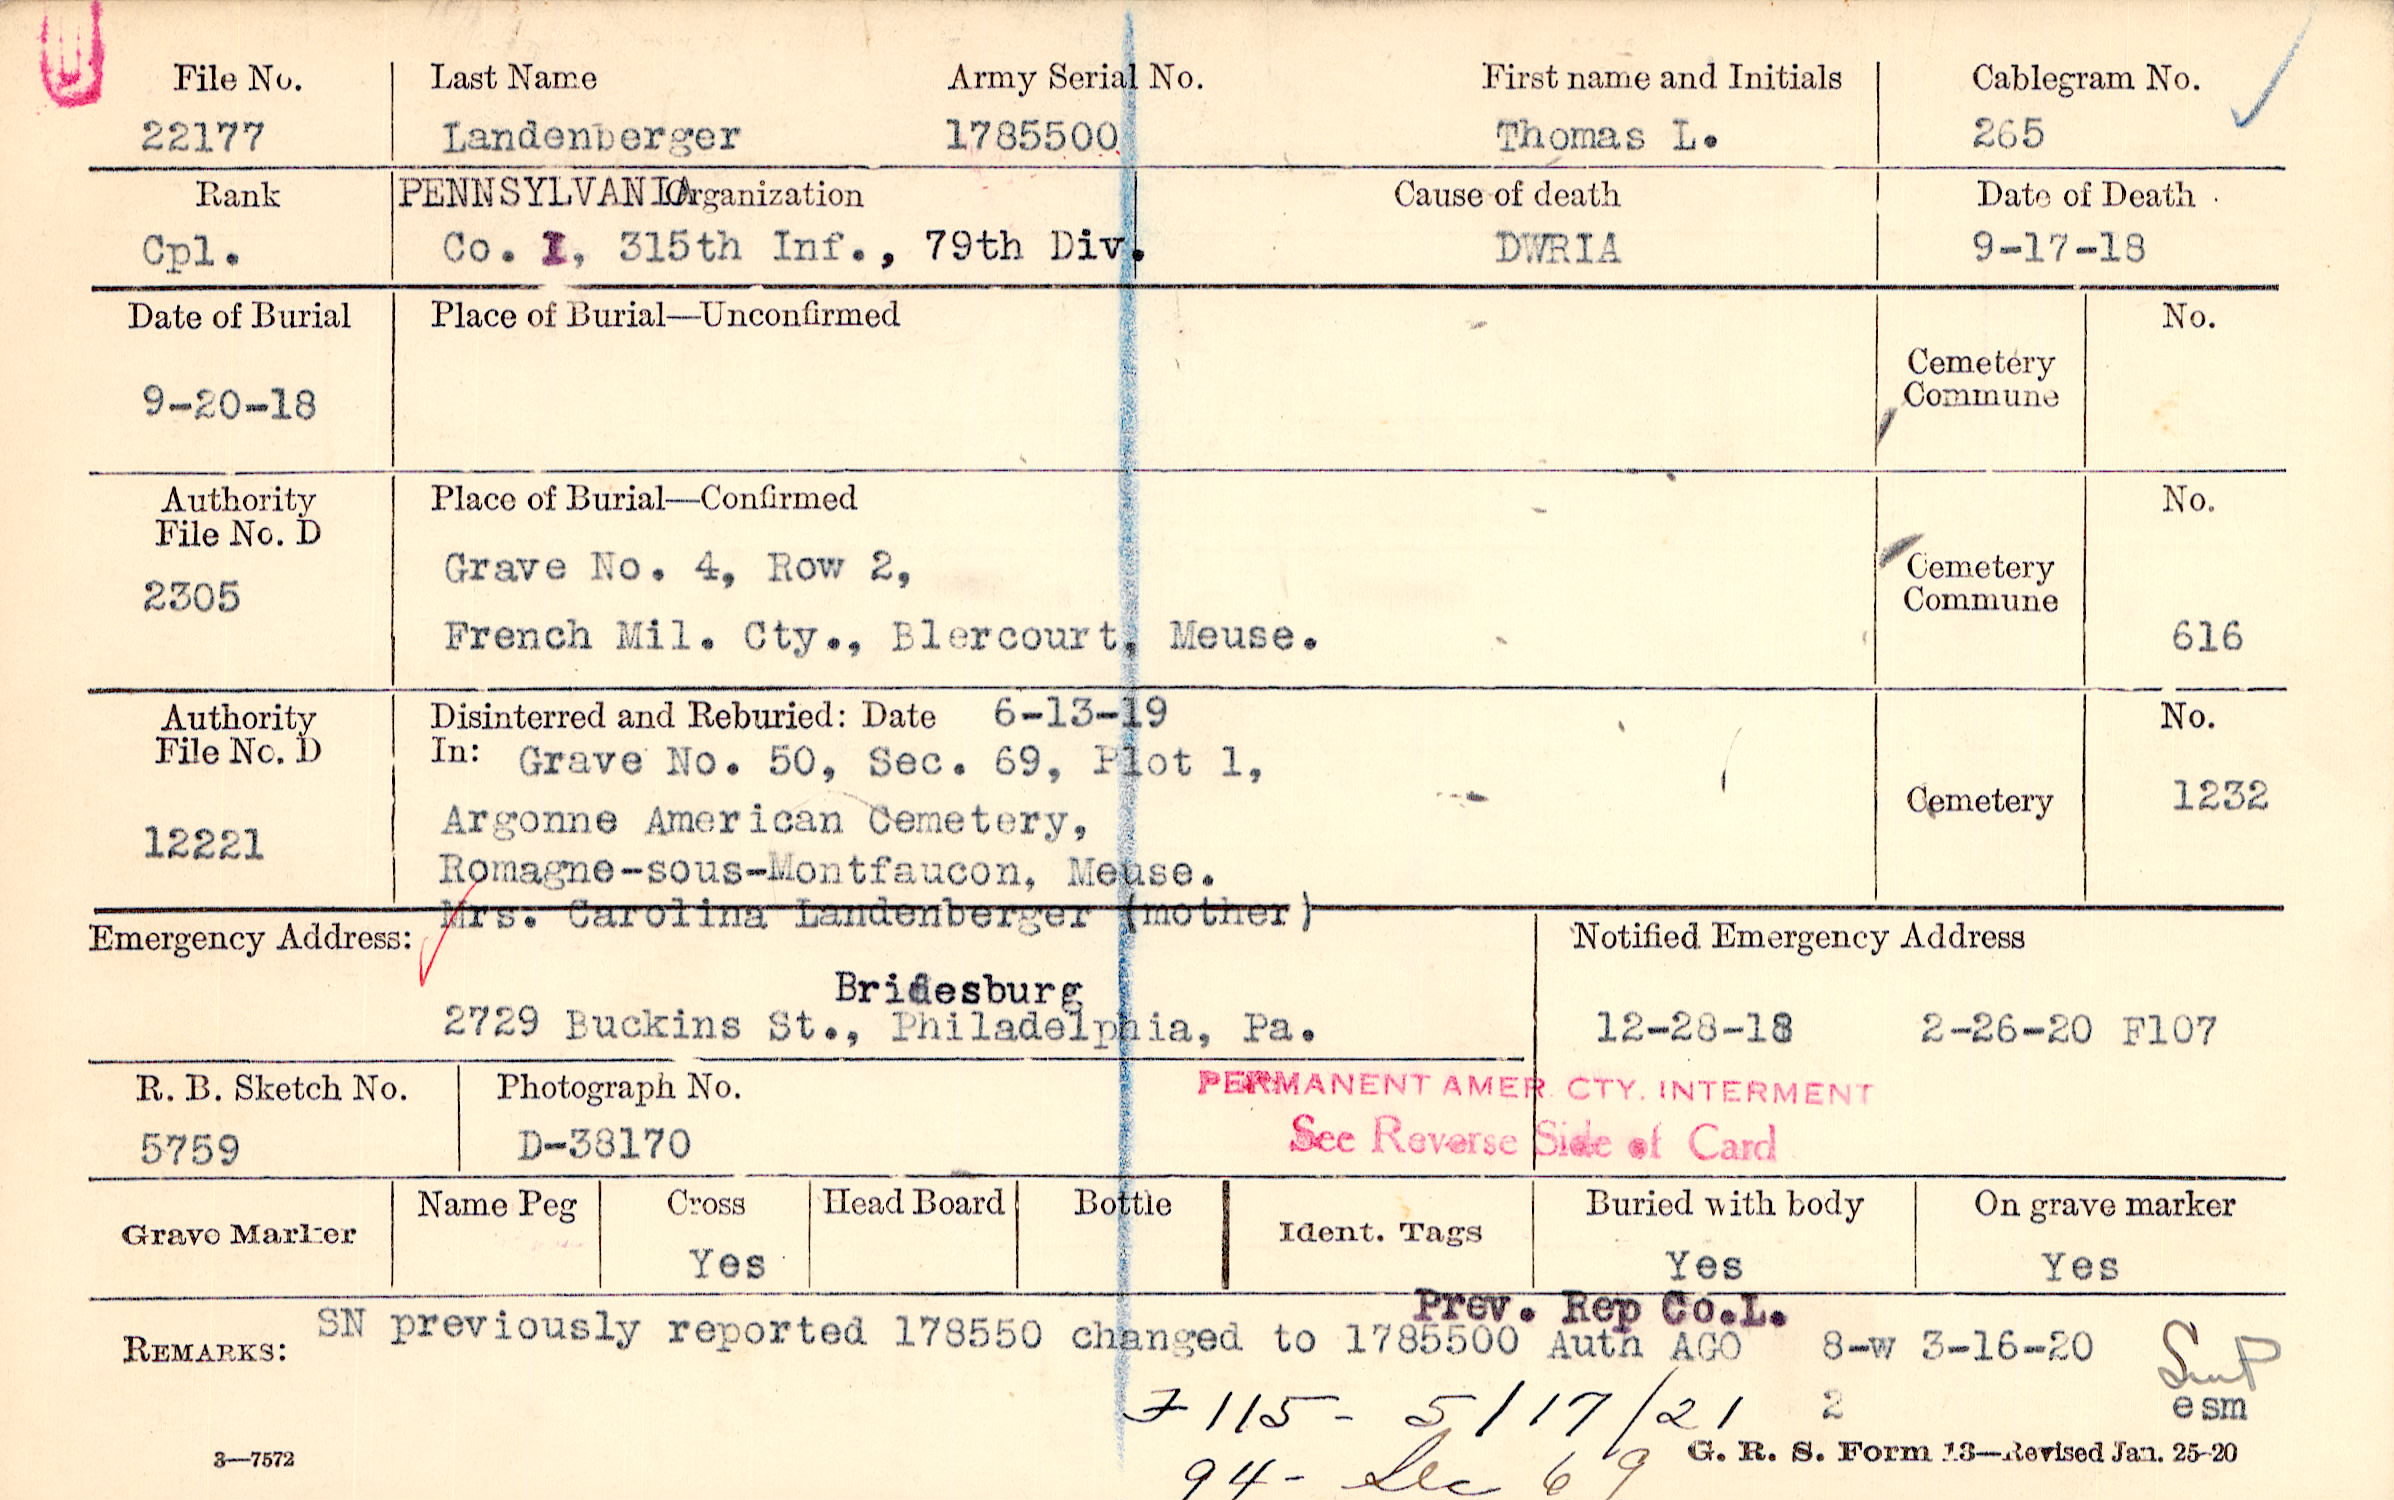 File No. Last Name Army Serial No. First name and Initials Cablegram No.
22177 Landenberger 1785500 Thomas L. 265
Rank PENNSYLVANIA Organization Cause of death Date of Death
Cpl. Co. I, 315th Inf., 79th Div. DWRIA 9-17-18
Date of Burial Place of Burial—Unconfirmed No.
Cemetery
Commune
9-20-18
Authority Place of Burial—Confirmed No.
File No. D
Grave No. 4, Row 2, Cemetery
2305 Commune
French Mil. Cty., Blercourt, Meuse. 616
Authority Disinterred and Reburied: Date 6-13-19 No.
File No. D In: Grave No. 50, Sec. 69, Plot 1,
Cemetery 1232
Argonne American Cemetery,
12221
Romagne-sous-Montfaucon, Meuse.
Mrs. Carolina Landenberger (mother)
Emergency Address: Notified Emergency Address
Bridesburg
2729 Buckins St., Philadelphia, Pa. 12-28-18 2-26-20 F107
R. B. Sketch No. Photograph No. PERMANENT AMER. CTY. INTERMENT
5759 D-38170 See Reverse Side of Card
Grave Marker Name Peg Cross Head Board Bottle Ident. Tags Buried with body On grave marker
Yes Yes Yes
Prev. Rep Co.L.
REMARKS: SN previously reported 178550 changed to 1785500 Auth AGO 8-w 3-16-20
F 115 - 5/17/21 2 esm
3—7572 G. R. S. Form 13—Revised Jan. 25-20
94- Sec 69